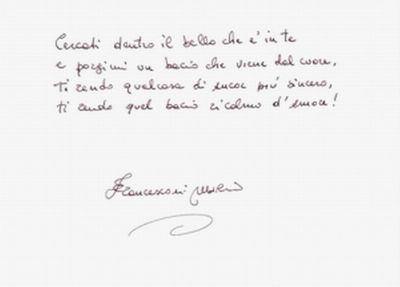 Cercati dentro il bello che e' in te
e porgimi un bacio che viene dal cuore,
Ti rendo qualcosa di ancor piú sincero,
ti rendo quel bacio ricolmo d'amore!
Francesconi